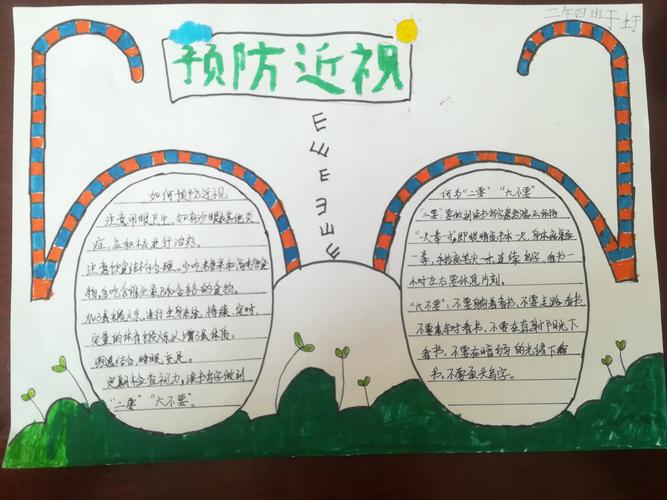 二年四班于
预防近视
E E E E E E E
如何预防近视
注意用眼卫生,如有沙眼或其他炎
症,应积极进行治疗。
注意饮食结构合理。少吃糖果和高糖食
物,多吃含维生素
加强户外,进行全身系统、持续、定时、
定量的体育锻炼以增强体质。
劳逸结合,睡眠充足。
定期检查视力,读书写字做到
“二要”“六不要”。
何为“二要”“六不要”
“二要”:要做到读书写字姿势端正保持
“一尺一拳一寸”即眼睛离书本一尺,身体离桌
一拳,手指离笔尖一寸。连续写字、看书一
小时左右要休息片刻。
“六不要”:不要躺着看书、不要走路看书、
不要乘车时看书、不要在直射阳光下
看书、不要在暗的光线下
书、不要歪头写字。